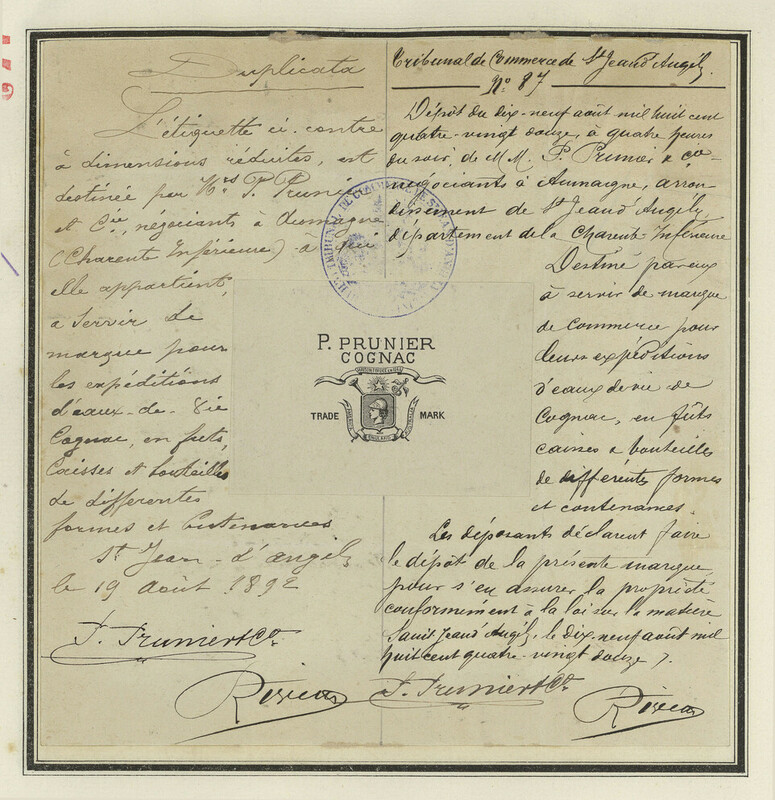 Duplicata
L'étiquette ci-contre
à dimensions réduites, est
destinée par Mrs P. Prunier
et Cie, négociants à Aumagne
(Charente Inférieure) à qui
elle appartient,
à servir de
marque pour
les expéditions
d'eaux-de-vie
Cognac, en futs,
Caisses et bouteilles
de differentes
formes et Contenances
St Jean-d'angély
le 19 Août 1892
P. Prunier & Co.
Tribunal de Commerce de St Jean d'Angély.
No. 87
Dépôt du dix-neuf août mil huit cent
quatre-vingt douze, à quatre heures
du soir, de M.M. P. Prunier & Co
négociants à Aumagne, arron-
dissement de St Jean d'Angély,
département de la Charente Inférieure
Destiné par eux
à servir de marque
de commerce pour
leurs expéditions
d'eaux de vie de
Cognac, en fûts
caisses & bouteilles
de différentes formes
et contenances.
Les déposants déclarent faire
le dépôt de la présente marque
pour s'en assurer la propriété
conformément à la loi sur la matière
Saint Jean d'Angély, le dix-neuf août mil
huit cent quatre-vingt douze.
P. Prunier & Co.
P. PRUNIER
COGNAC
TRADE MARK